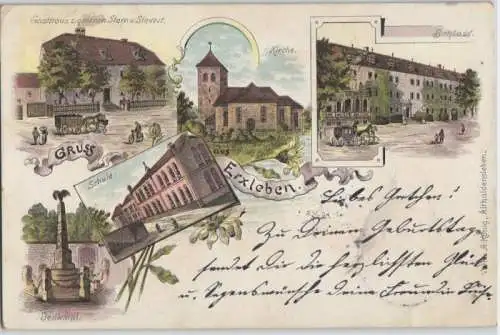 Gasthaus z. goldenen Stern v. Sievert.
Kirche.
Schloss.
GRUSS
aus
Erxleben.
Schule
Denkmal.
Althaldensleben.
Liebes Gretchen!
Zu Deinem Geburtstage
sendet Dir die herzlichsten Glück
u. Segenswünsche Deine Freundin